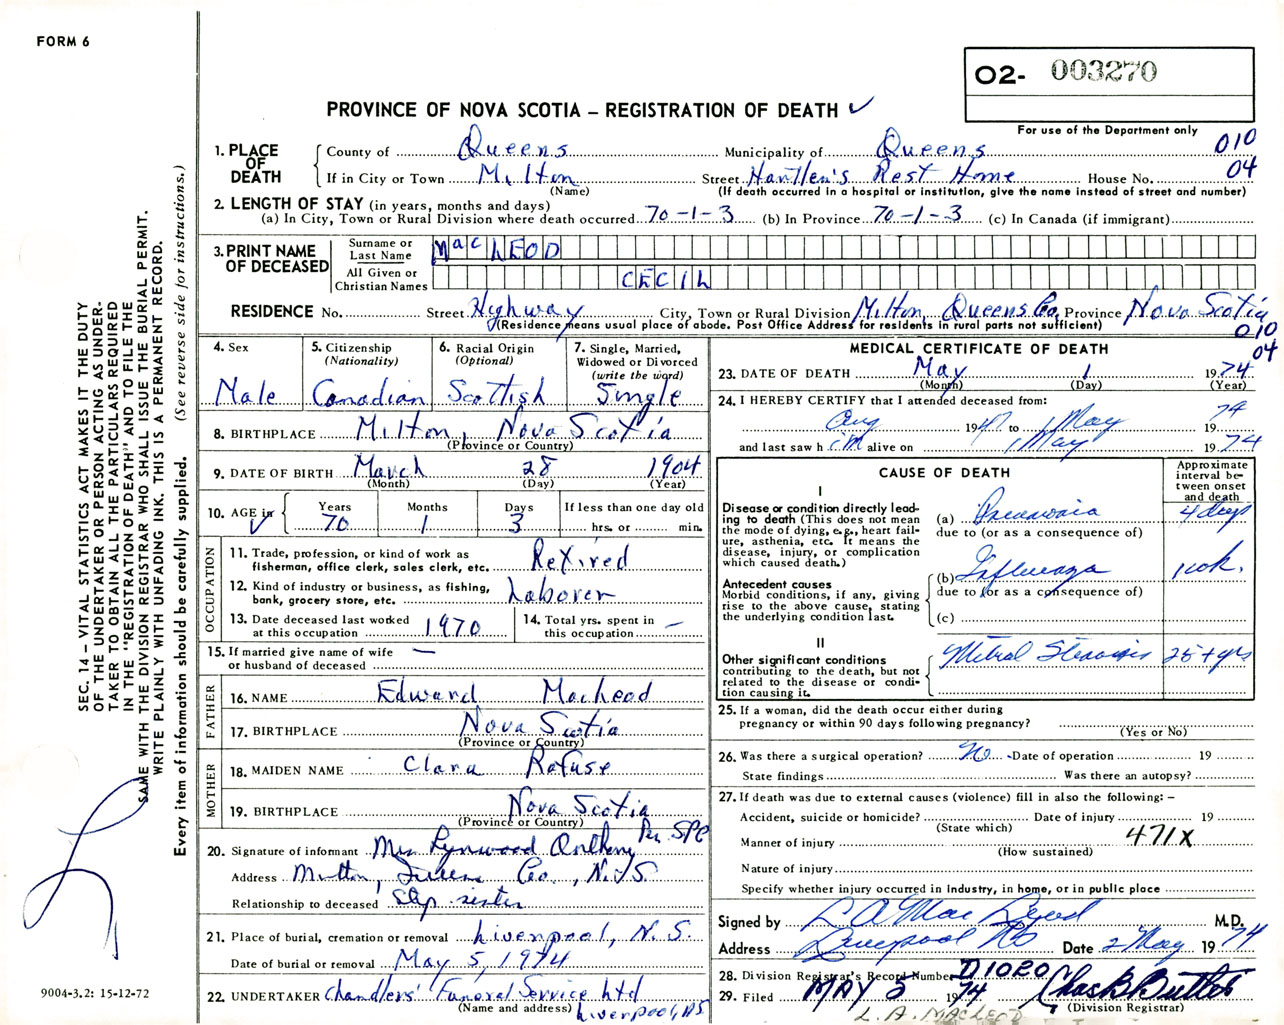 FORM 6
O2- 003270
For use of the Department only
PROVINCE OF NOVA SCOTIA – REGISTRATION OF DEATH ✓
010
04
1. PLACE OF DEATH
County of Queens Municipality of Queens
If in City or Town Milton Street Hantlen's Rest Home House No.
(Name) (If death occurred in a hospital or institution, give the name instead of street and number)
2. LENGTH OF STAY (in years, months and days)
(a) In City, Town or Rural Division where death occurred 70-1-3 (b) In Province 70-1-3 (c) In Canada (if immigrant)
3. PRINT NAME OF DECEASED
Surname or Last Name MacLEOD
All Given or Christian Names CECIL
RESIDENCE No. Street Highway City, Town or Rural Division Milton, Queens Co. Province Nova Scotia
(Residence means usual place of abode. Post Office Address for residents in rural parts not sufficient)
010
04
4. Sex Male
5. Citizenship (Nationality) Canadian
6. Racial Origin (Optional) Scottish
7. Single, Married, Widowed or Divorced (write the word) Single
8. BIRTHPLACE Milton, Nova Scotia
(Province or Country)
9. DATE OF BIRTH March 28 1904
(Month) (Day) (Year)
10. AGE in ✓ Years 70 Months 1 Days 3 If less than one day old
hrs. or min.
OCCUPATION
11. Trade, profession, or kind of work as fisherman, office clerk, sales clerk, etc. Retired
12. Kind of industry or business, as fishing, bank, grocery store, etc. Laborer
13. Date deceased last worked at this occupation 1970
14. Total yrs. spent in this occupation –
15. If married give name of wife or husband of deceased —
FATHER
16. NAME Edward MacLeod
17. BIRTHPLACE Nova Scotia
(Province or Country)
MOTHER
18. MAIDEN NAME Clara Rafuse
19. BIRTHPLACE Nova Scotia
(Province or Country)
20. Signature of informant Mrs Lynwood Anthony Per SPC
Address Milton, Queens Co., N.S.
Relationship to deceased Step sister
21. Place of burial, cremation or removal Liverpool, N.S.
Date of burial or removal May 5, 1974
22. UNDERTAKER Chandlers' Funeral Service Ltd
(Name and address) Liverpool, N.S.
MEDICAL CERTIFICATE OF DEATH
23. DATE OF DEATH May 1 1974
(Month) (Day) (Year)
24. I HEREBY CERTIFY that I attended deceased from:
Aug 1947 to 1 May 1974
and last saw him alive on 1 May 1974
CAUSE OF DEATH
Approximate interval between onset and death
I
Disease or condition directly leading to death (This does not mean the mode of dying, e.g., heart failure, asthenia, etc. It means the disease, injury, or complication which caused death.)
(a) Pneumonia 4 days
due to (or as a consequence of)
Antecedent causes
Morbid conditions, if any, giving rise to the above cause, stating the underlying condition last.
(b) Influenza 1 wk.
due to (or as a consequence of)
(c)
II
Other significant conditions contributing to the death, but not related to the disease or condition causing it.
Mitral Stenosis 25+ yrs
25. If a woman, did the death occur either during pregnancy or within 90 days following pregnancy?
(Yes or No)
26. Was there a surgical operation? No Date of operation 19
State findings Was there an autopsy?
27. If death was due to external causes (violence) fill in also the following: –
Accident, suicide or homicide? Date of injury 19
(State which)
Manner of injury 471X
(How sustained)
Nature of injury
Specify whether injury occurred in industry, in home, or in public place
Signed by L A MacLeod M.D.
Address Liverpool NS Date 2 May 1974
28. Division Registrar's Record Number D1020
29. Filed MAY 5 1974 Chas B Butler
(Division Registrar)
L. A. MACLEOD
SEC. 14 – VITAL STATISTICS ACT MAKES IT THE DUTY
OF THE UNDERTAKER OR PERSON ACTING AS UNDER-
TAKER TO OBTAIN ALL THE PARTICULARS REQUIRED
IN THE "REGISTRATION OF DEATH" AND TO FILE THE
SAME WITH THE DIVISION REGISTRAR WHO SHALL ISSUE THE BURIAL PERMIT.
WRITE PLAINLY WITH UNFADING INK. THIS IS A PERMANENT RECORD.
Every item of information should be carefully supplied. (See reverse side for instructions.)
9004-3.2: 15-12-72